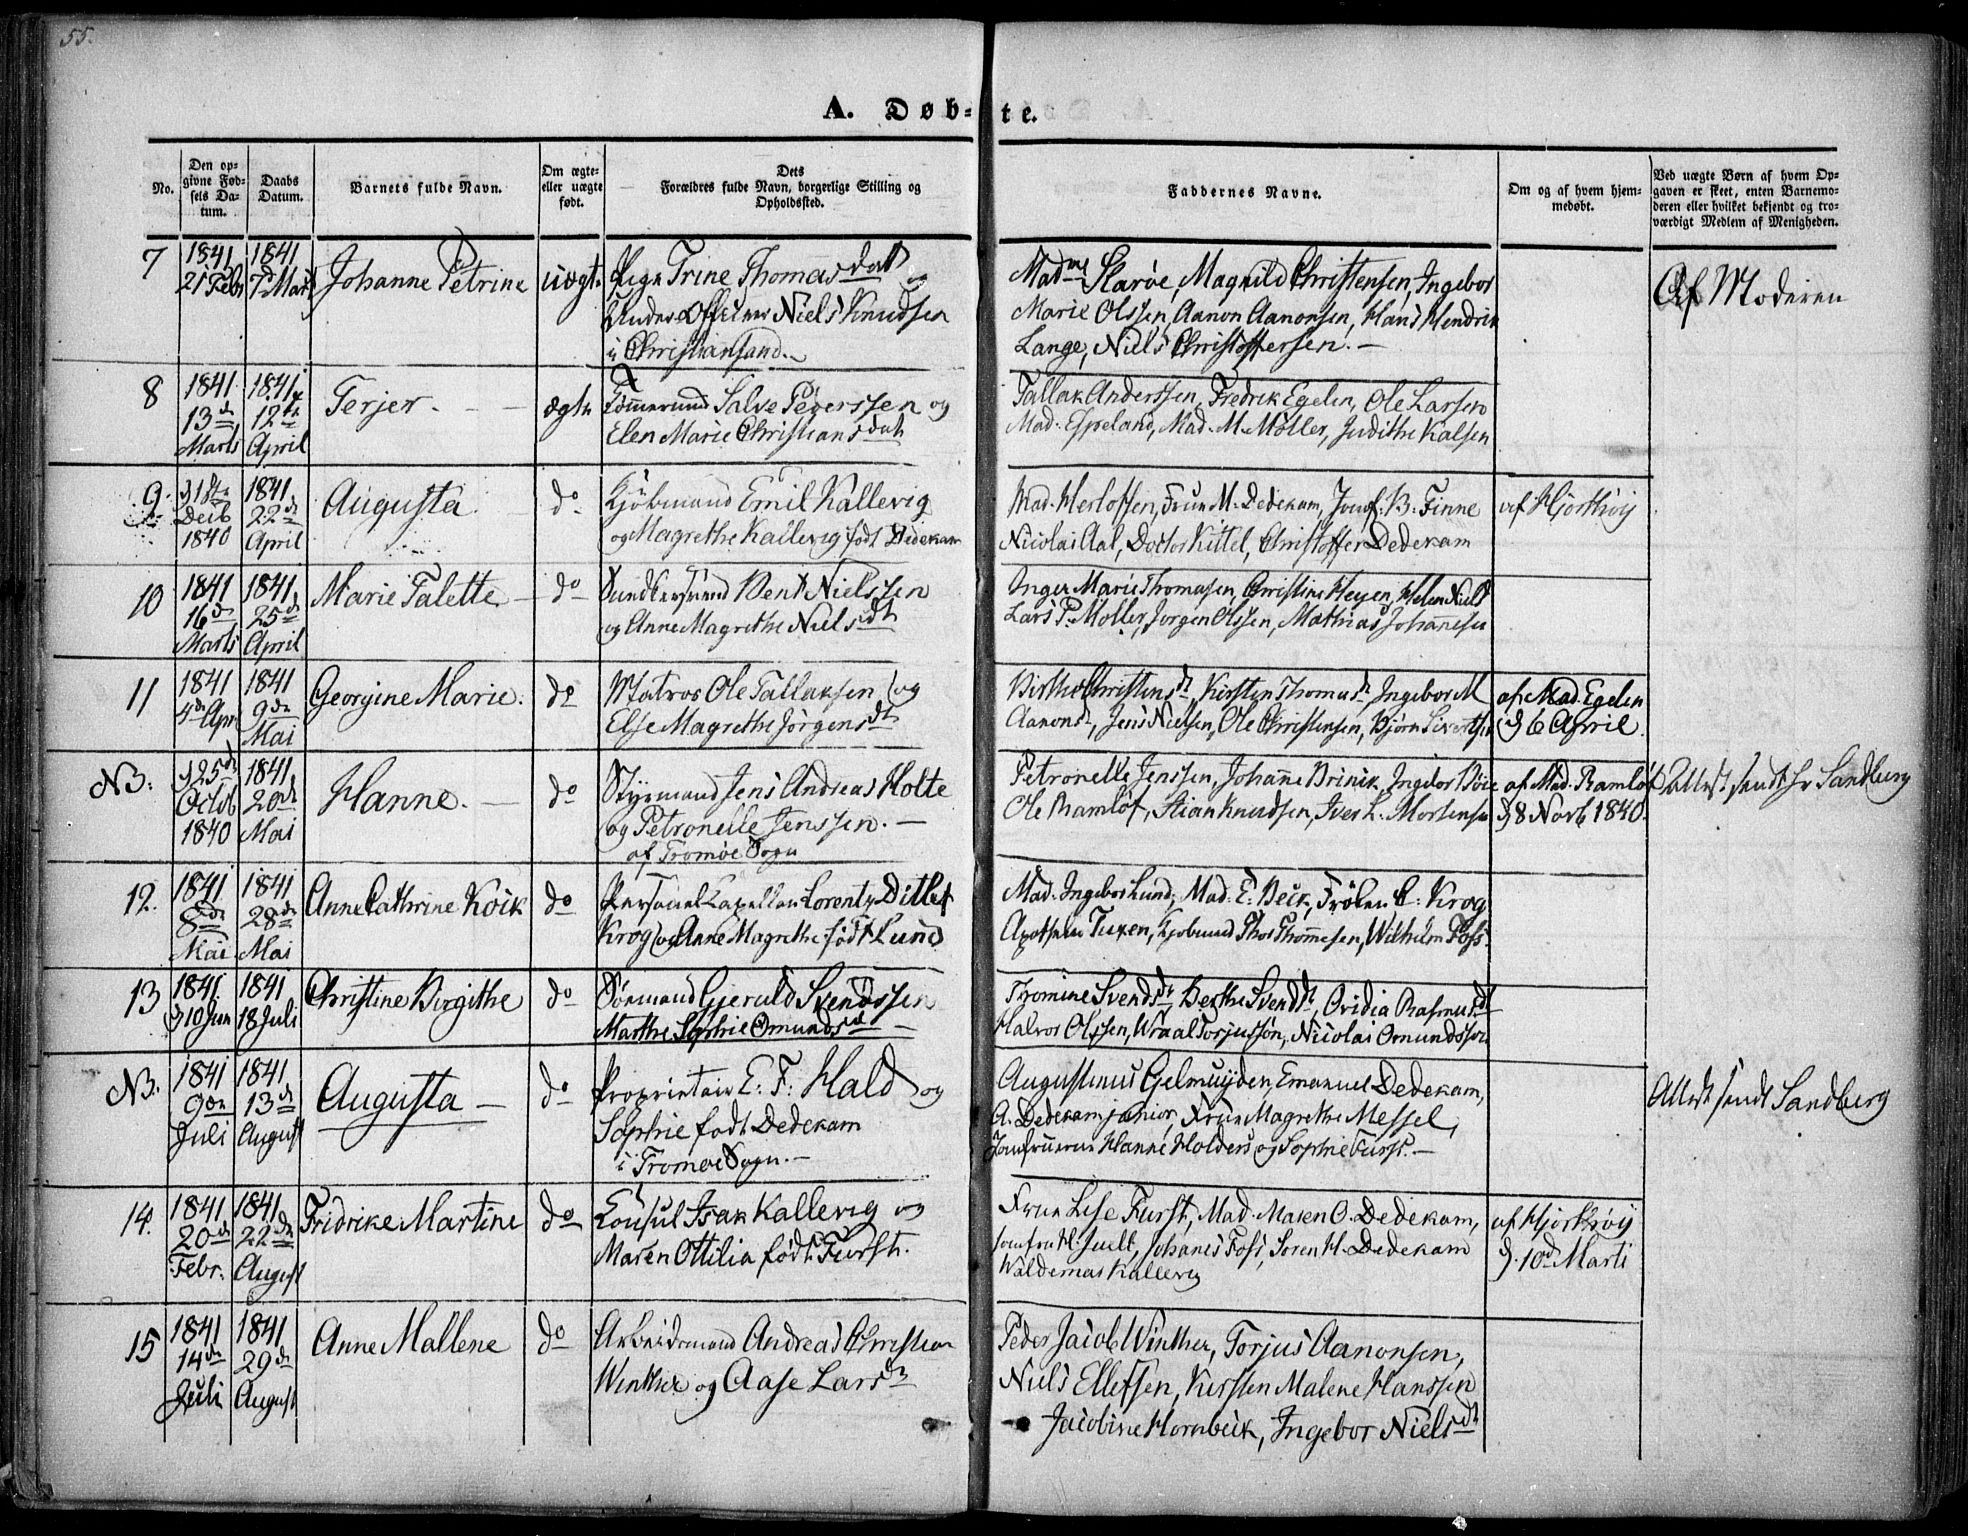 55.
A. Døb-te.
No.
Den op-
givne Fød-
sels Da-
tum.
Daabs
Datum.
Barnets fulde Navn.
Om ægte-
eller uægte
født.
Dets
Forældres fulde Navn, borgerlige Stilling og
Opholdssted.
Faddernes Navne.
Om og af hvem hjem-
medøbt.
Ved uægte Børn af hvem Op-
gaven er skeet, enten Barnemo-
deren eller hvilket bekjendt og tro-
værdigt Medlem af Menigheden.
7
1841
21 Febr
1841
7 Marts
Johanne Petrine
uægte
Pige Trine Thomasdatt og
Under Officeer Niels Knudsen
i Christiansand.
Madme Skarøe, Magnild Christensen, Ingebor
Marie Olssen, Aanon Aanonsen, Hans Hendrik
Lange, Niels Christoffersen. —
Af Moderen
8
1841
13de
Marts
1841
12te
April
Terjer. —
ægte
Tømmermd Salve Pederssen og
Elen Marie Christiansdatt
Tallak Anderssen, Fredrik Egelen, Ole Larsen
Mad. Espeland, Mad. M. Møller, Judithe Kalsen
9.
31te
Decb
1840
1841
22de
April
Augusta
do
Kjöbmand Emil Kallevig
og Magrethe Kallevig født Dedekam
Mad. Herlofsen, Frue M. Dedekam, Jomf. B. Finne
Nicolai Aal, Doctor Kittel, Christoffer Dedekam
af Hjorthöy
10
1841
16de
Marts
1841
25de
April
Marie Talette —
do
Bent Nielssen
og Anne Magrethe Nielsdt
Inger Marie Thomasen, Christine Heyen, Helen Niels
Lars P. Møller, Jørgen Olssen, Mathias Johannesen
11
1841
4de Apr
1841
9de
Mai
Georgine Marie.
do
Matros Ole Tallaksen og
Else Magrethe Jörgensdt
Birthe Christensdt, Kirsten Thomasdt Ingebor M
Aanonsdt, Jens Nielsen, Ole Christensen, Bjørn Sivertsen
af Mad. Egelen
d 6 April.
NB:
d 25de
Octob
1840
1841
20de
Mai
Hanne. —
do
Styrmand Jens Andreas Holte
og Petronelle Jenssen. —
af Tromøe Sogn
Petronelle Jenssen, Johanne Brinik, Ingebor Böie
Ole Ramlöf, Stian Knudsen, Iver L. Mortensen
af Mad. Ramlöf
d 8 Novb 1840.
Attest sendt Hr Sandberg
12.
1841
8de
Mai
1841
28de
Mai
Anne Cathrine Koik
do
Personel Capellan Lorentz Ditlef
Krog og Anne Magrethe født Lund
Mad. Ingebor Lund, Mad. E. Beck, Frøken C. Krog
Apotheker Tuxen, Kjøbmand Thor Thommesen, Wilhelm Foss.
13
1841
d 10 Jun
1841
18 Juli
Christine Birgithe
do
Sömand Gjeruld Svendssen
Marthe Sophie Omundsdt —
Tromine Svendsdt, Berthe Svendsdt, Ovidia Rasmusdt
Halvor Olssen, Wraal Torjussøn, Nicolai Omundssen
NB.
1841
9de
Juli
1841
13de
August
Augusta —
do
Proprietair E. F. Hald og
Sophie født Dedekam
i Tromøe Sogn. —
Augustinus Gelmuyden, Emanuel Dedekam,
A. Dedekam junior, Frue Magrethe Messel,
Jomfruerne Hanne Holders og Sophie Furst. —
Attest sendt Sandberg
14.
1841
20de
Febr.
1841
22de
August
Fridrike Martine
do
Consul Isak Kallevig og
Maren Ottilia født Furst.
Frue Lise Furst, Mad. Maren O. Dedekam,
Jomfru H. Juell, Johanes Foss, Soren H. Dedekam
Waldemar Kallevig
af Hjorthöy
d. 10de Marti
15
1841
14de
Juli
1841
29de
August
Anne Mallene
do
Arbeidsmand Andreas Christian
Winther og Aase Larsdt
Peder Jacob Winther, Torjus Aanonsen,
Niels Ellefsen, Kirsten Malene Hanssen
Jacobine Hornbeck, Ingebor Nielsdt